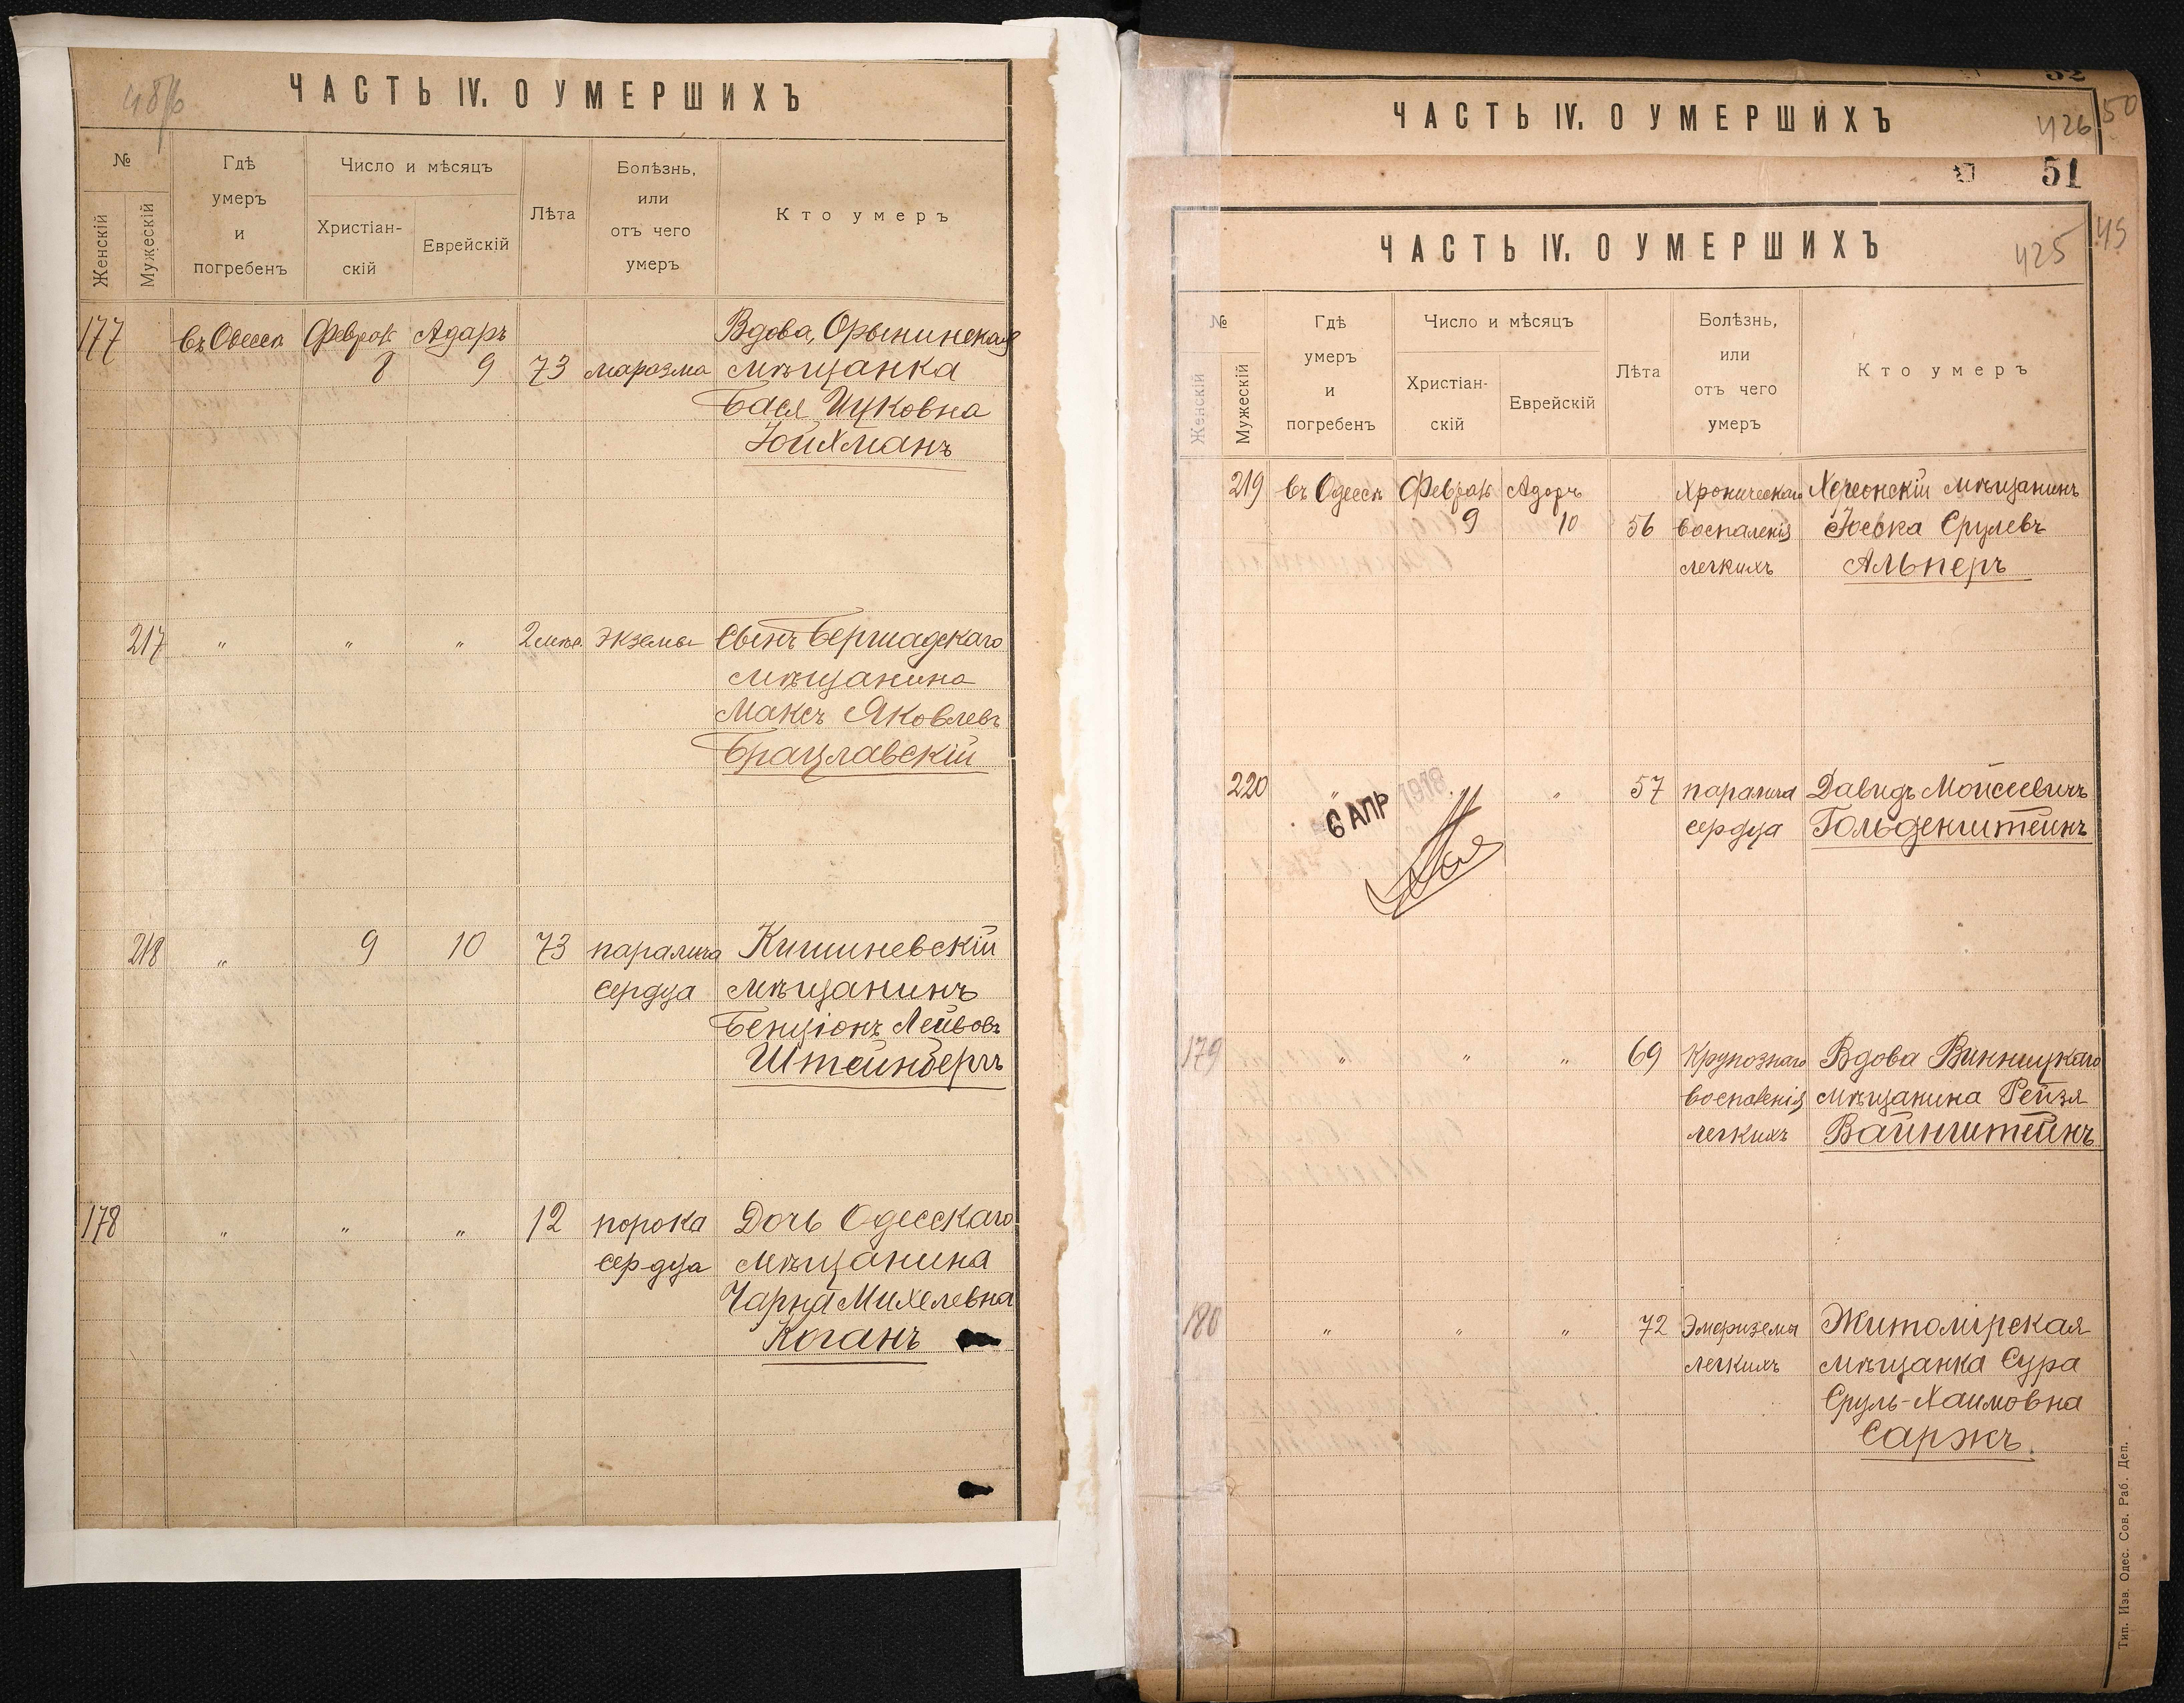 ЧАСТЬ IV. О УМЕРШИХЪ
№
Женскій
Мужескій
Гдѣ
умеръ
и
погребенъ
Число и мѣсяцъ
Христіан-
скій
Еврейскій
Лѣта
Болѣзнь,
или
отъ чего
умеръ
Кто умеръ
177 въ Одессѣ Адаръ Вдова, Орынинская
8 9 73 маразма мѣщанка
Бася Ицковна
Юйхманъ
217 " " " экземы Сынъ Бершадскаго
мѣщанина
Максъ Яковлевъ
Брацлавскій
218 " 9 10 73 паралича Кишиневскій
сердца мѣщанинъ
Бенціонъ Лейбовъ
Штейнбергъ
178 " " " 12 порока Дочь Одесскаго
сердца мѣщанина
Чарна Михелевна
Коганъ
52
ЧАСТЬ IV. О УМЕРШИХЪ
426
50
51
ЧАСТЬ IV. О УМЕРШИХЪ
425
№
Женскій
Мужескій
Гдѣ
умеръ
и
погребенъ
Число и мѣсяцъ
Христіан-
скій
Еврейскій
Лѣта
Болѣзнь,
или
отъ чего
умеръ
Кто умеръ
219 въ Одессѣ Адаръ Хроническаго Херсонскій мѣщанинъ
9 10 56 воспаленія Іоська Срулевъ
легкихъ Альперъ
220 " " 57 паралича Давидъ Мойсеевичъ
сердца Гольденштейнъ
6 АПР 1918
179 " " " 69 Крупознаго Вдова Винницкаго
воспаленія мѣщанина Рейзя
легкихъ Вайнштейнъ
180 " " " 72 Эмфиземы Житомірская
легкихъ мѣщанка Сура
Сруль-Хаимовна
Саржъ
Тип. Изв. Одес. Сов. Раб. Деп.